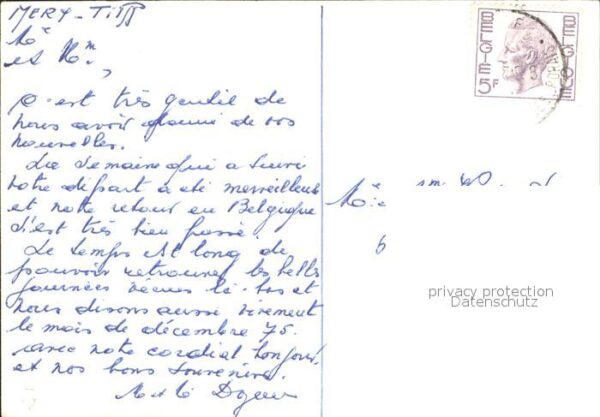 MERY-Tilff
Mr
et Mme,
C'est très gentil de
nous avoir donné de vos
nouvelles.
La semaine qui a suivi
votre départ a été merveilleuse
et notre retour en Belgique
s'est très bien passé.
Le temps est long de
pouvoir retrouver les belles
journées vécues là-bas et
nous disons aussi vivement
le mois de décembre 75.
avec notre cordial bonjour
et nos bons souvenirs.
BELGIE 5F
BELGIQUE
privacy protection
Datenschutz